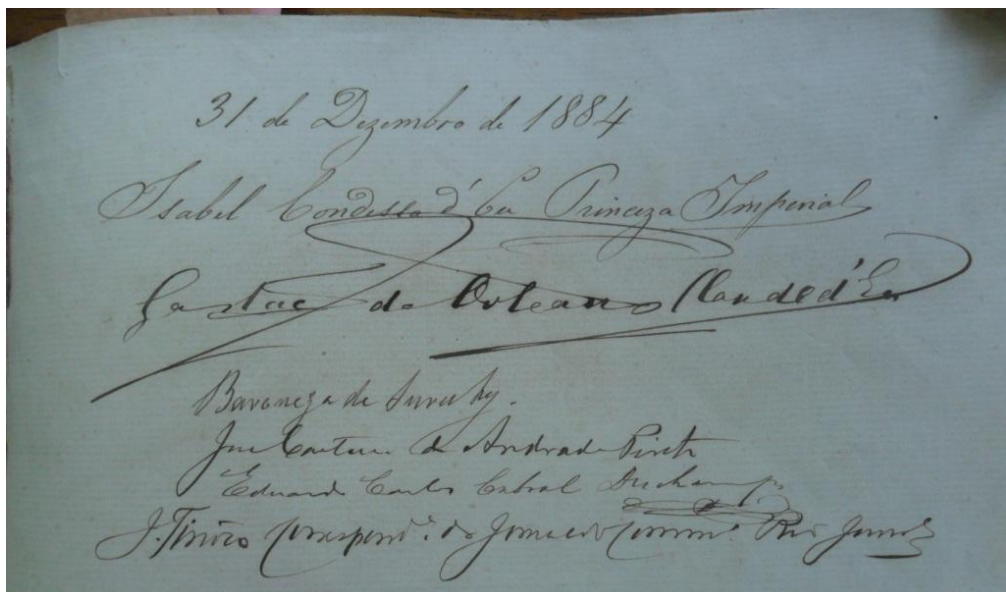 31 de Dezembro de 1884
Isabel Condessa d'Eu Princeza Imperial
Gastão de Orleans Conde d'Eu
Baroneza de Suruhy.
José Caetano de Andrade Pinto
Eduardo Carlos Cabral Deschamps
J. Tinôco Correspond.e do Jornal do Comm.o Rio Janr.o